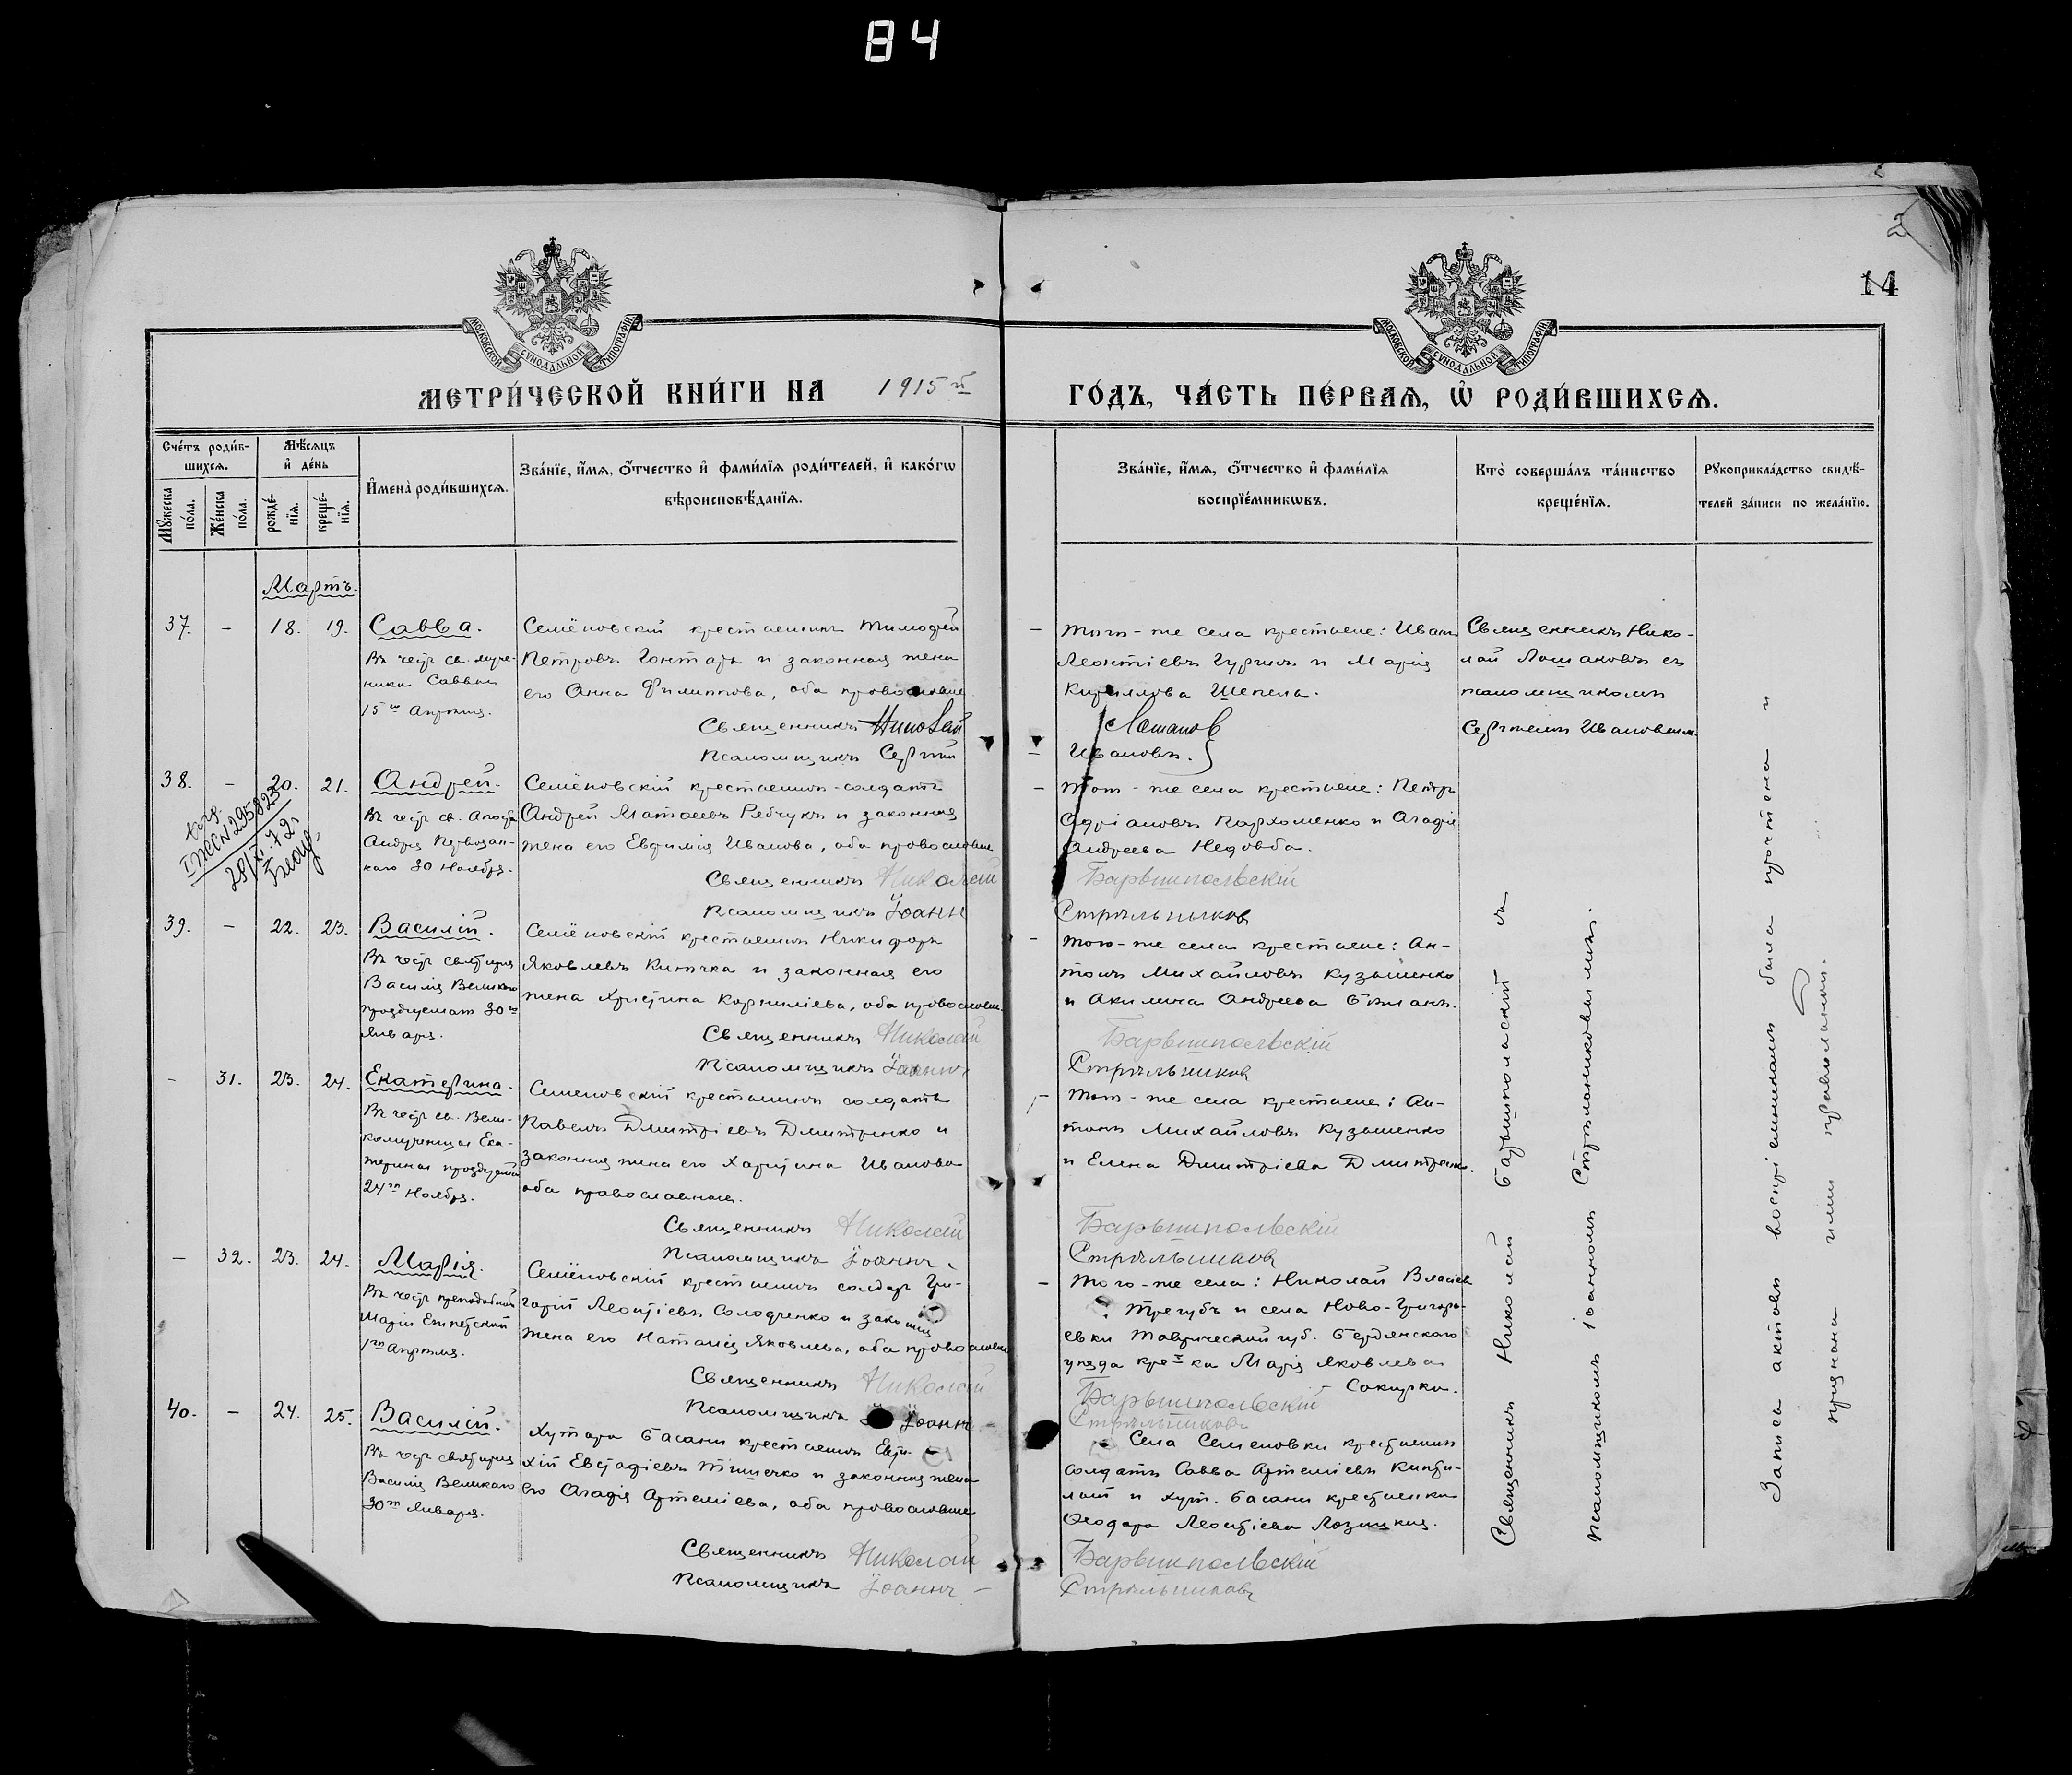 84
2
14
МОСКОВСКОЙ СѴНОДАЛЬНОЙ ТИПОГРАФІИ
МОСКОВСКОЙ СѴНОДАЛЬНОЙ ТИПОГРАФІИ
МЕТРИ́ЧЕСКОЙ КНИ́ГИ НА 1915й ГО́ДЪ, ЧА́СТЬ ПЕ́РВАѦ, Ѡ҆ РОДИ́ВШИХСѦ.
Сче́тъ роди́в-
шихсѧ.
Мꙋ́жеска по́ла.
Же́нска по́ла.
Мѣ́сѧцъ
и҆ де́нь
рожде́-
нїѧ.
креще́-
нїѧ.
И҆мена̀ роди́вшихсѧ.
Зва́нїе, и҆́мѧ, ѻ҆́тчество и҆ фами́лїѧ роди́телей, и҆ како́гѡ
вѣроисповѣ́данїѧ.
Зва́нїе, и҆́мѧ, ѻ҆́тчество и҆ фами́лїѧ
воспрїе́мникѡвъ.
Кто̀ соверша́лъ та́инство
креще́нїѧ.
Рꙋкоприкла́дство свидѣ́-
телей за́писи по жела́нїю.
Мартъ.
37. - 18. 19. Савва.
Въ честь св. муче-
ника Саввы
15го Апрѣля.
Семёновскій крестьянинъ Тимофей
Петровъ Гонтарь и законная жена
его Анна Филиппова, оба православные
Священникъ Николай
Псаломщикъ Сергій
- того-же села крестьяне: Иванъ
Леонтіевъ Гуринъ и Марія
Кириллова Шепель.
Лошаков
Ивановъ.
Священникъ Нико-
лай Лошаковъ съ
псаломщикомъ
Сергіемъ Ивановымъ.
38. - 20. 21. Андрей.
Въ честь св. Апост.
Андрея Первозван-
наго 30 Ноября.
I ЖС № 295823
28/XI.72г
Семёновскій крестьянинъ-солдатъ
Андрей Матѳеевъ Рябчукъ и законная
жена его Евфимія Иванова, оба православные
Священникъ Николай
Псаломщикъ Іоаннъ
- того-же села крестьяне: Петръ
Адріановъ Пархоменко и Агафія
Андреева Недовба.
Барвишпольскій
Стрѣльников
39. - 22. 23. Василій.
Въ честь святителя
Василія Великаго
празднуемаго 30го
Января.
Семёновскій крестьянинъ Никифоръ
Яковлевъ Киличка и законная его
жена Христина Корниліева, оба православные.
Священникъ Николай
Псаломщикъ Іоаннъ
- того-же села крестьяне: Ан-
тонъ Михайловъ Кузьменко
и Акилина Андреева Бѣланъ.
Барвишпольскій
Стрѣльников
- 31. 23. 24. Екатерина.
Въ честь св. Вели-
комученицы Ека-
терины празднуемой
24го Ноября.
Семёновскій крестьянинъ солдатъ
Павелъ Дмитріевъ Дмитренко и
законная жена его Харитина Иванова
оба православные.
Священникъ Николай
Псаломщикъ Іоаннъ
- того-же села крестьяне: Ан-
тонъ Михайловъ Кузьменко
и Елена Дмитріева Дмитренко.
Барвишпольскій
Стрѣльников
- 32. 23. 24. Марія.
Въ честь преподобной
Маріи Египетской
1го Апрѣля.
Семёновскій крестьянинъ солдатъ Гри-
горій Леонтіевъ Солодченко и законная
жена его Наталія Яковлева, оба православные
Священникъ Николай
Псаломщикъ Іоаннъ
- того-же села: Николай Власіевъ
Трегубъ и села Ново-Григорь-
евки Таврической губ. Бердянскаго
уѣзда кре-ка Марія Яковлева
Сокирка.
Барвишпольскій
Стрѣльников
40. - 24. 25. Василій.
Въ честь святителя
Василія Великаго
30го Января.
Хутора Басани крестьянинъ Евти-
хій Евстафіевъ Тимечко и законная жена
его Агафія Артеміева, оба православные
Священникъ Николай
Псаломщикъ Іоаннъ
Села Семеновки крестьянинъ
солдатъ Савва Артеміевъ
и хут. Басани крестьянка
Ѳеодора Леонтіева Лозицкая.
Барвишпольскій
Стрѣльников
Священникъ Николай Барвишпольскій съ
псаломщикомъ Іоанномъ Стрѣльниковымъ.
Запись актовъ воспріемниками была прочтена и
признана ими правильной.